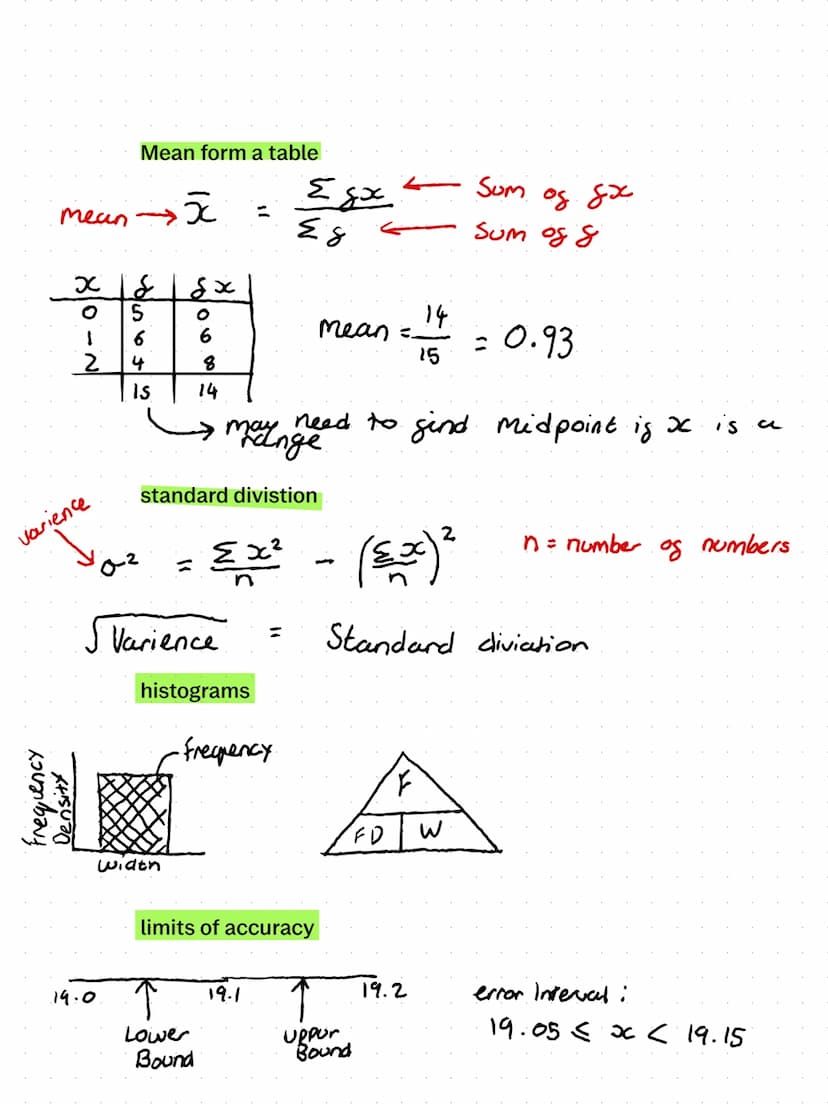 Mean form a table
mean → x̄ = Σfx / Σf ← Sum of fx
← Sum of f
x f fx
0 5 0
1 6 6
2 4 8
15 14
mean = 14/15 = 0.93
may need to find midpoint if x is a
range
standard divistion
varience
σ² = Σx²/n − (Σx/n)²
n = number of numbers
√Varience = Standard diviation
histograms
Frequency
Density
frequency
Width
F
FD W
limits of accuracy
19.0 19.1 19.2
Lower
Bound
Uppur
Bound
error Interval :
19.05 ≤ x < 19.15